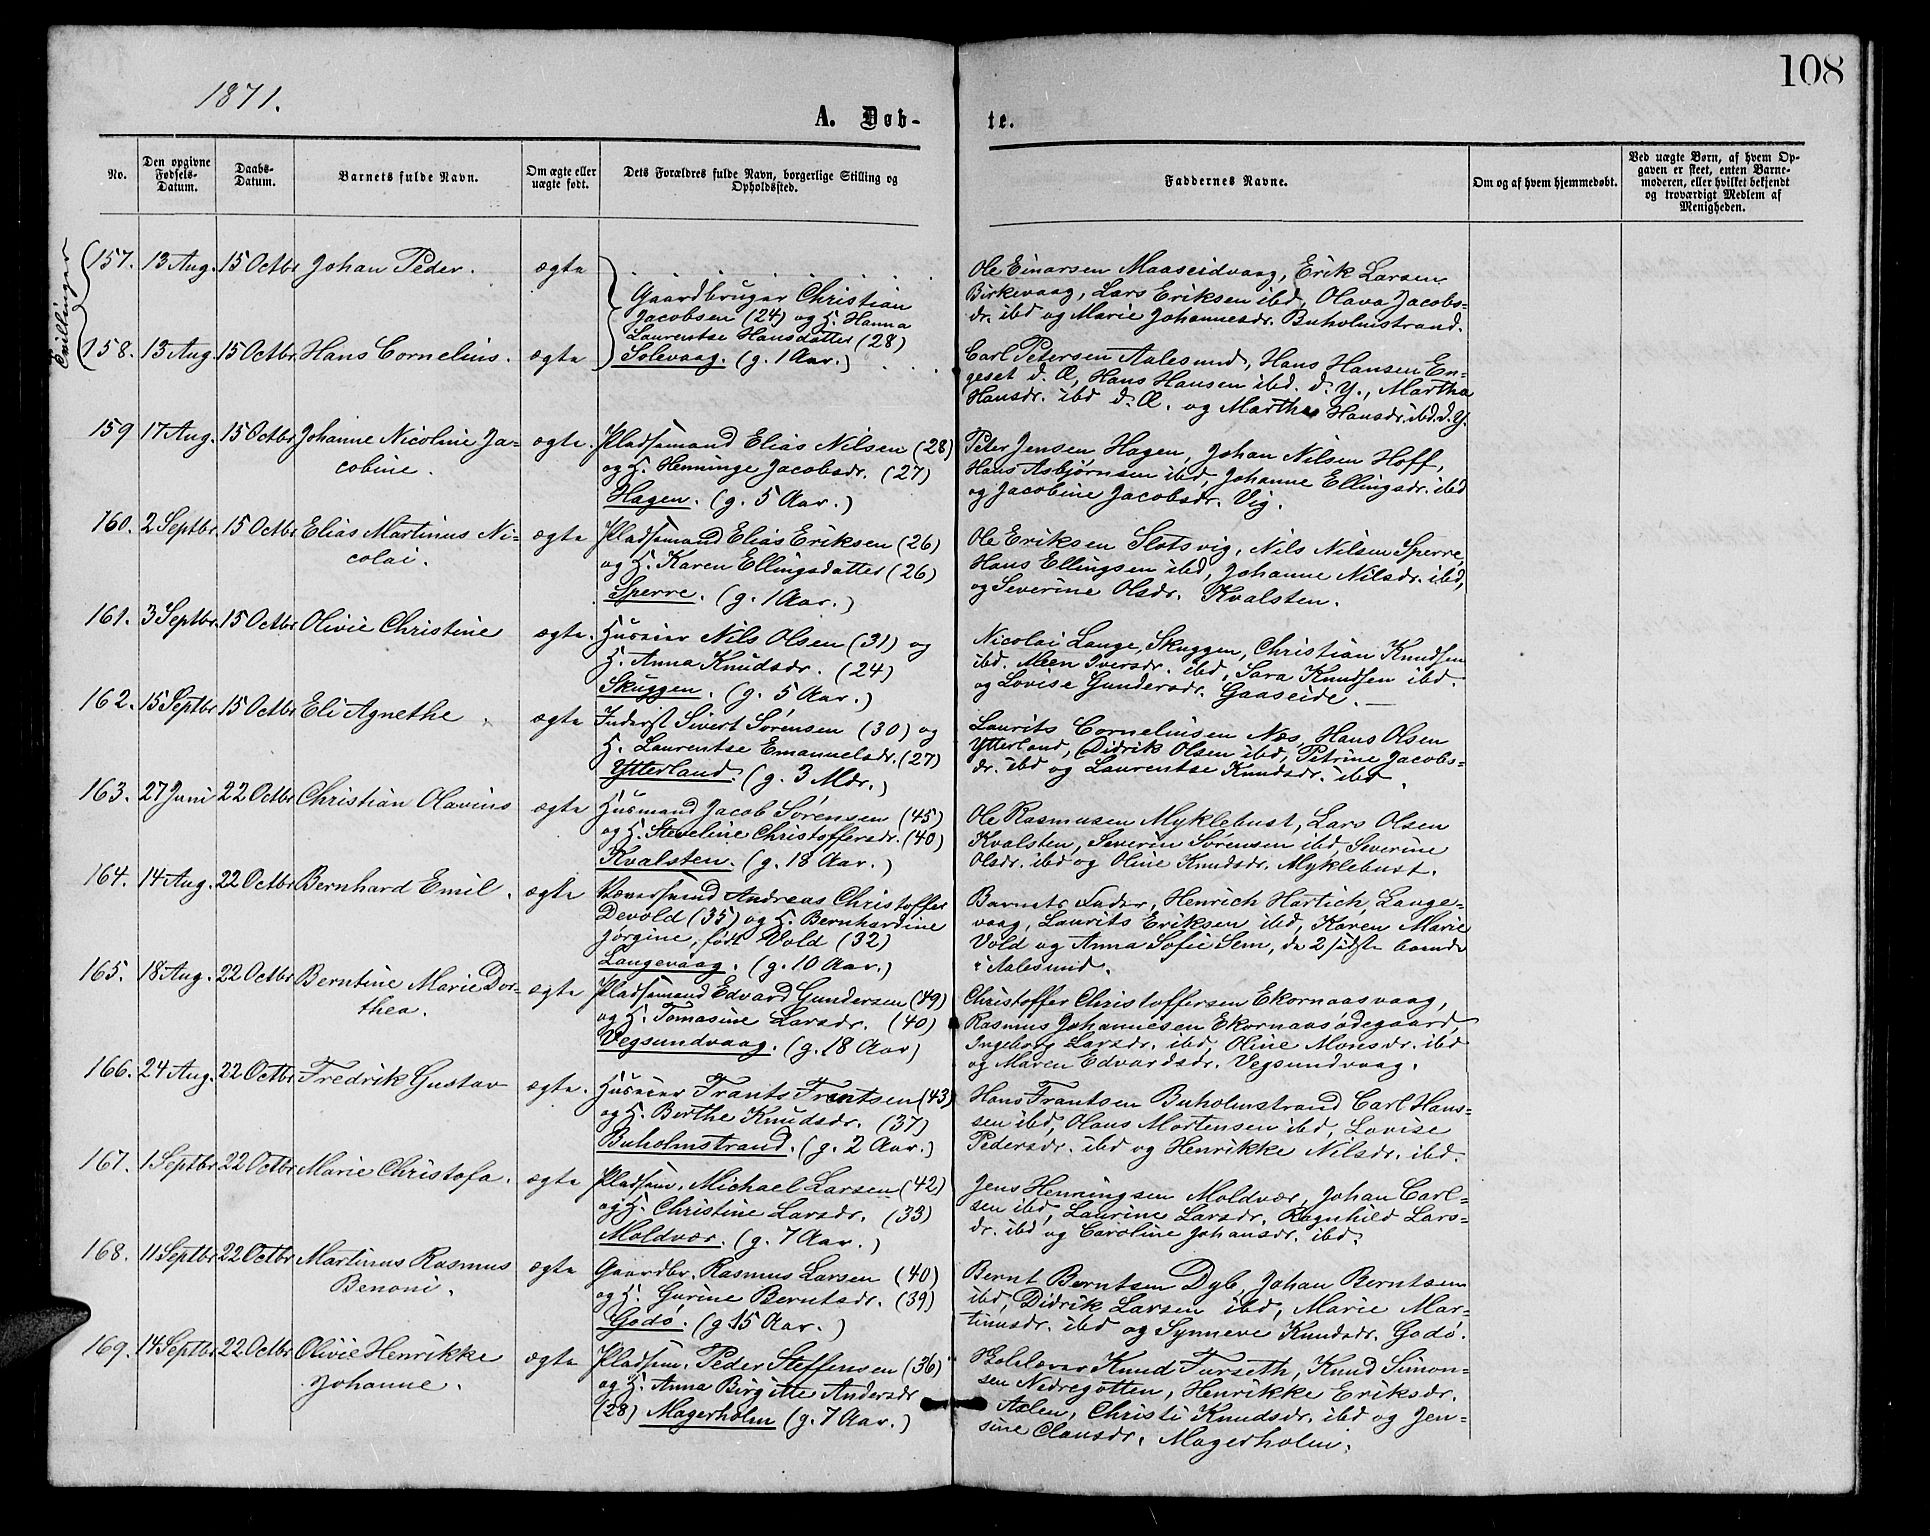 108
1871.
A. Døb-
te.
No.
Den opgivne Fødsels-Datum.
Daabs-Datum.
Barnets fulde Navn.
Om ægte eller uægte født.
Dets Forældres fulde Navn, borgerlige Stilling og Opholdssted.
Faddernes Navne.
Om og af hvem hjemmedøbt.
Ved uægte Børn, af hvem Op-
gaven er skeet, enten Barne-
moderen, eller hvilket bekjendt
og troværdigt Medlem af
Menigheden.
Tvillinger
157. 13 Aug. 15 Octbr Johan Peder. ægte
158. 13 Aug. 15 Octbr. Hans Cornelius. ægte
Gaardbruger Christian
Jacobsen (24) og H. Hanna
Laurentse Hansdatter (28)
Solevaag. (g. 1 Aar.)
Ole Einarsen Maaseidvaag, Erik Larsen
Birkevaag, Lars Eriksen ibd, Olava Jacobs-
dr. ibd og Marie Johannesdr. Buholmstrand.
Carl Petersen Aalesund, Hans Hansen En-
geset d. Æ, Hans Hansen ibd. d. Y., Martha
Hansdr. ibd d. Æ. og Martha Hansdr. ibd. d. Y.
159 17 Aug. 15 Octbr Johanne Nicoline Ja-
cobine.
ægte. Pladsemand Elias Nilsen (28)
og H. Henninge Jacobsdr. (27)
Hagen. (g. 5 Aar.)
Peter Jensen Hagen, Johan Nilsen Hoff,
Hans Asbjørnsen ibd, Johanne Ellingsdr. ibd
og Jacobine Jacobsdr. Vig.
160. 2 Septbr. 15 Octbr Elias Martinus Ni-
colai.
ægte Pladsemand Elias Eriksen (26)
og H. Karen Ellingsdatter (26)
Sperre. (g. 1 Aar.)
Ole Eriksen Slotsvig, Nils Nilsen Sperre,
Hans Ellingsen ibd, Johanne Nilsdr. ibd,
og Severine Olsdr. Kvalsten.
161. 3 Septbr. 15 Octbr Olivie Christine
ægte. Huseier Nils Olsen (31) og
H. Anna Knudsdr. (24)
Skuggen. (g. 5 Aar.)
Nicolai Lange, Skuggen, Christian Knudsen
ibd. Meen Iversdr. ibd, Sara Knudsen ibd.
og Lovise Gundersdr. Gaaseide.
162. 15 Septbr 15 Octbr Eli Agnethe
ægte Inderst Sivert Sørensen (30) og
H. Laurentse Emanuelsdr. (27)
Ytterland. (g. 3 Mdr.)
Laurits Corneliusen Næs, Hans Olsen
Ytterland, Didrik Olsen ibd, Petrine Jacobs-
dr. ibd og Laurentse Knudsdr. ibd.
163. 27 Juni 22 Octbr Christian Olavius
ægte Husmand Jacob Sørensen (45)
og H. Steveline Christoffersdr. (40)
Kvalsten. (g. 18 Aar.)
Ole Rasmusen Myklebust, Lars Olsen
Kvalsten, Severin Sørensen ibd, Severine
Olsdr. ibd og Oline Knudsdr. Myklebust.
164. 14 Aug. 22 Octbr Bernhard Emil.
ægte Andreas Christoffer
Devold (35) og H. Bernhardine
Jørgine, født Vold (32)
Langevaag. (g. 10 Aar.)
Barnets Fader, Henrich Hartich, Lange-
vaag, Laurits Eriksen ibd, Karen Marie
Vold og Anna Sofie Sem, de 2 sidste boende
i Aalesund.
165. 18 Aug. 22 Octbr Berntine Marie Dor-
thea.
ægte Pladsemand Edvard Gundersen (49)
og H. Tomasine Larsdr. (40)
Vegsundvaag. (g. 18 Aar)
Christoffer Christoffersen Ekornaasvaag,
Rasmus Johannesen Ekornaasødegaard,
Ingeborg Larsdr. ibd, Oline Monsdr. ibd
og Maren Edvardsdr. Vegsundvaag.
166. 24 Aug. 22 Octbr Fredrik Gustav
ægte. Huseier Frants Frantsen (43)
og H. Berthe Knudsdr. (37)
Buholmstrand. (g. 2 Aar.)
Hans Frantsen Buholmstrand Carl Han-
sen ibd, Olaus Mortensen ibd, Lovise
Pedersdr. ibd og Henrikke Nilsdr. ibd.
167. 1 Septbr 22 Octbr Marie Christofa.
ægte Pladsem. Michael Larsen (42)
og H. Christine Larsdr. (33)
Moldvær. (g. 7 Aar.)
Jens Henningsen Moldvær, Johan Carl-
sen ibd, Laurine Larsdr. Ragnhild Lars-
dr. ibd og Caroline Johansdr. ibd.
168. 11 Septbr 22 Octbr Martinus Rasmus
Benoni.
ægte Gaardbr. Rasmus Larsen (40)
og H. Gurine Berntsdr. (39)
Godø. (g 15 Aar.)
Bernt Berntsen Dyb, Johan Berntsen
ibd, Didrik Larsen ibd, Marie Mar-
tinusdr. ibd og Synneve Knudsdr. Godø.
169. 14 Septbr 22 Octbr Olivie Henrikke
Johanne.
ægte Pladsem. Peder Steffensen (36)
og H. Anna Birgitte Andersdr
(28) Magerholm (g. 7 Aar.)
Knud Furseth, Knud Simon-
sen Nedregotten, Henrikke Eriksdr.
Aslen, Christi Knudsdr. ibd og Jen-
sine Clausdr. Magerholm.